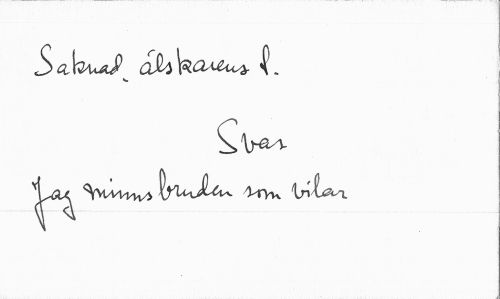 Saknad, älskarens l.
Svar
Jag minns bruden som vilar